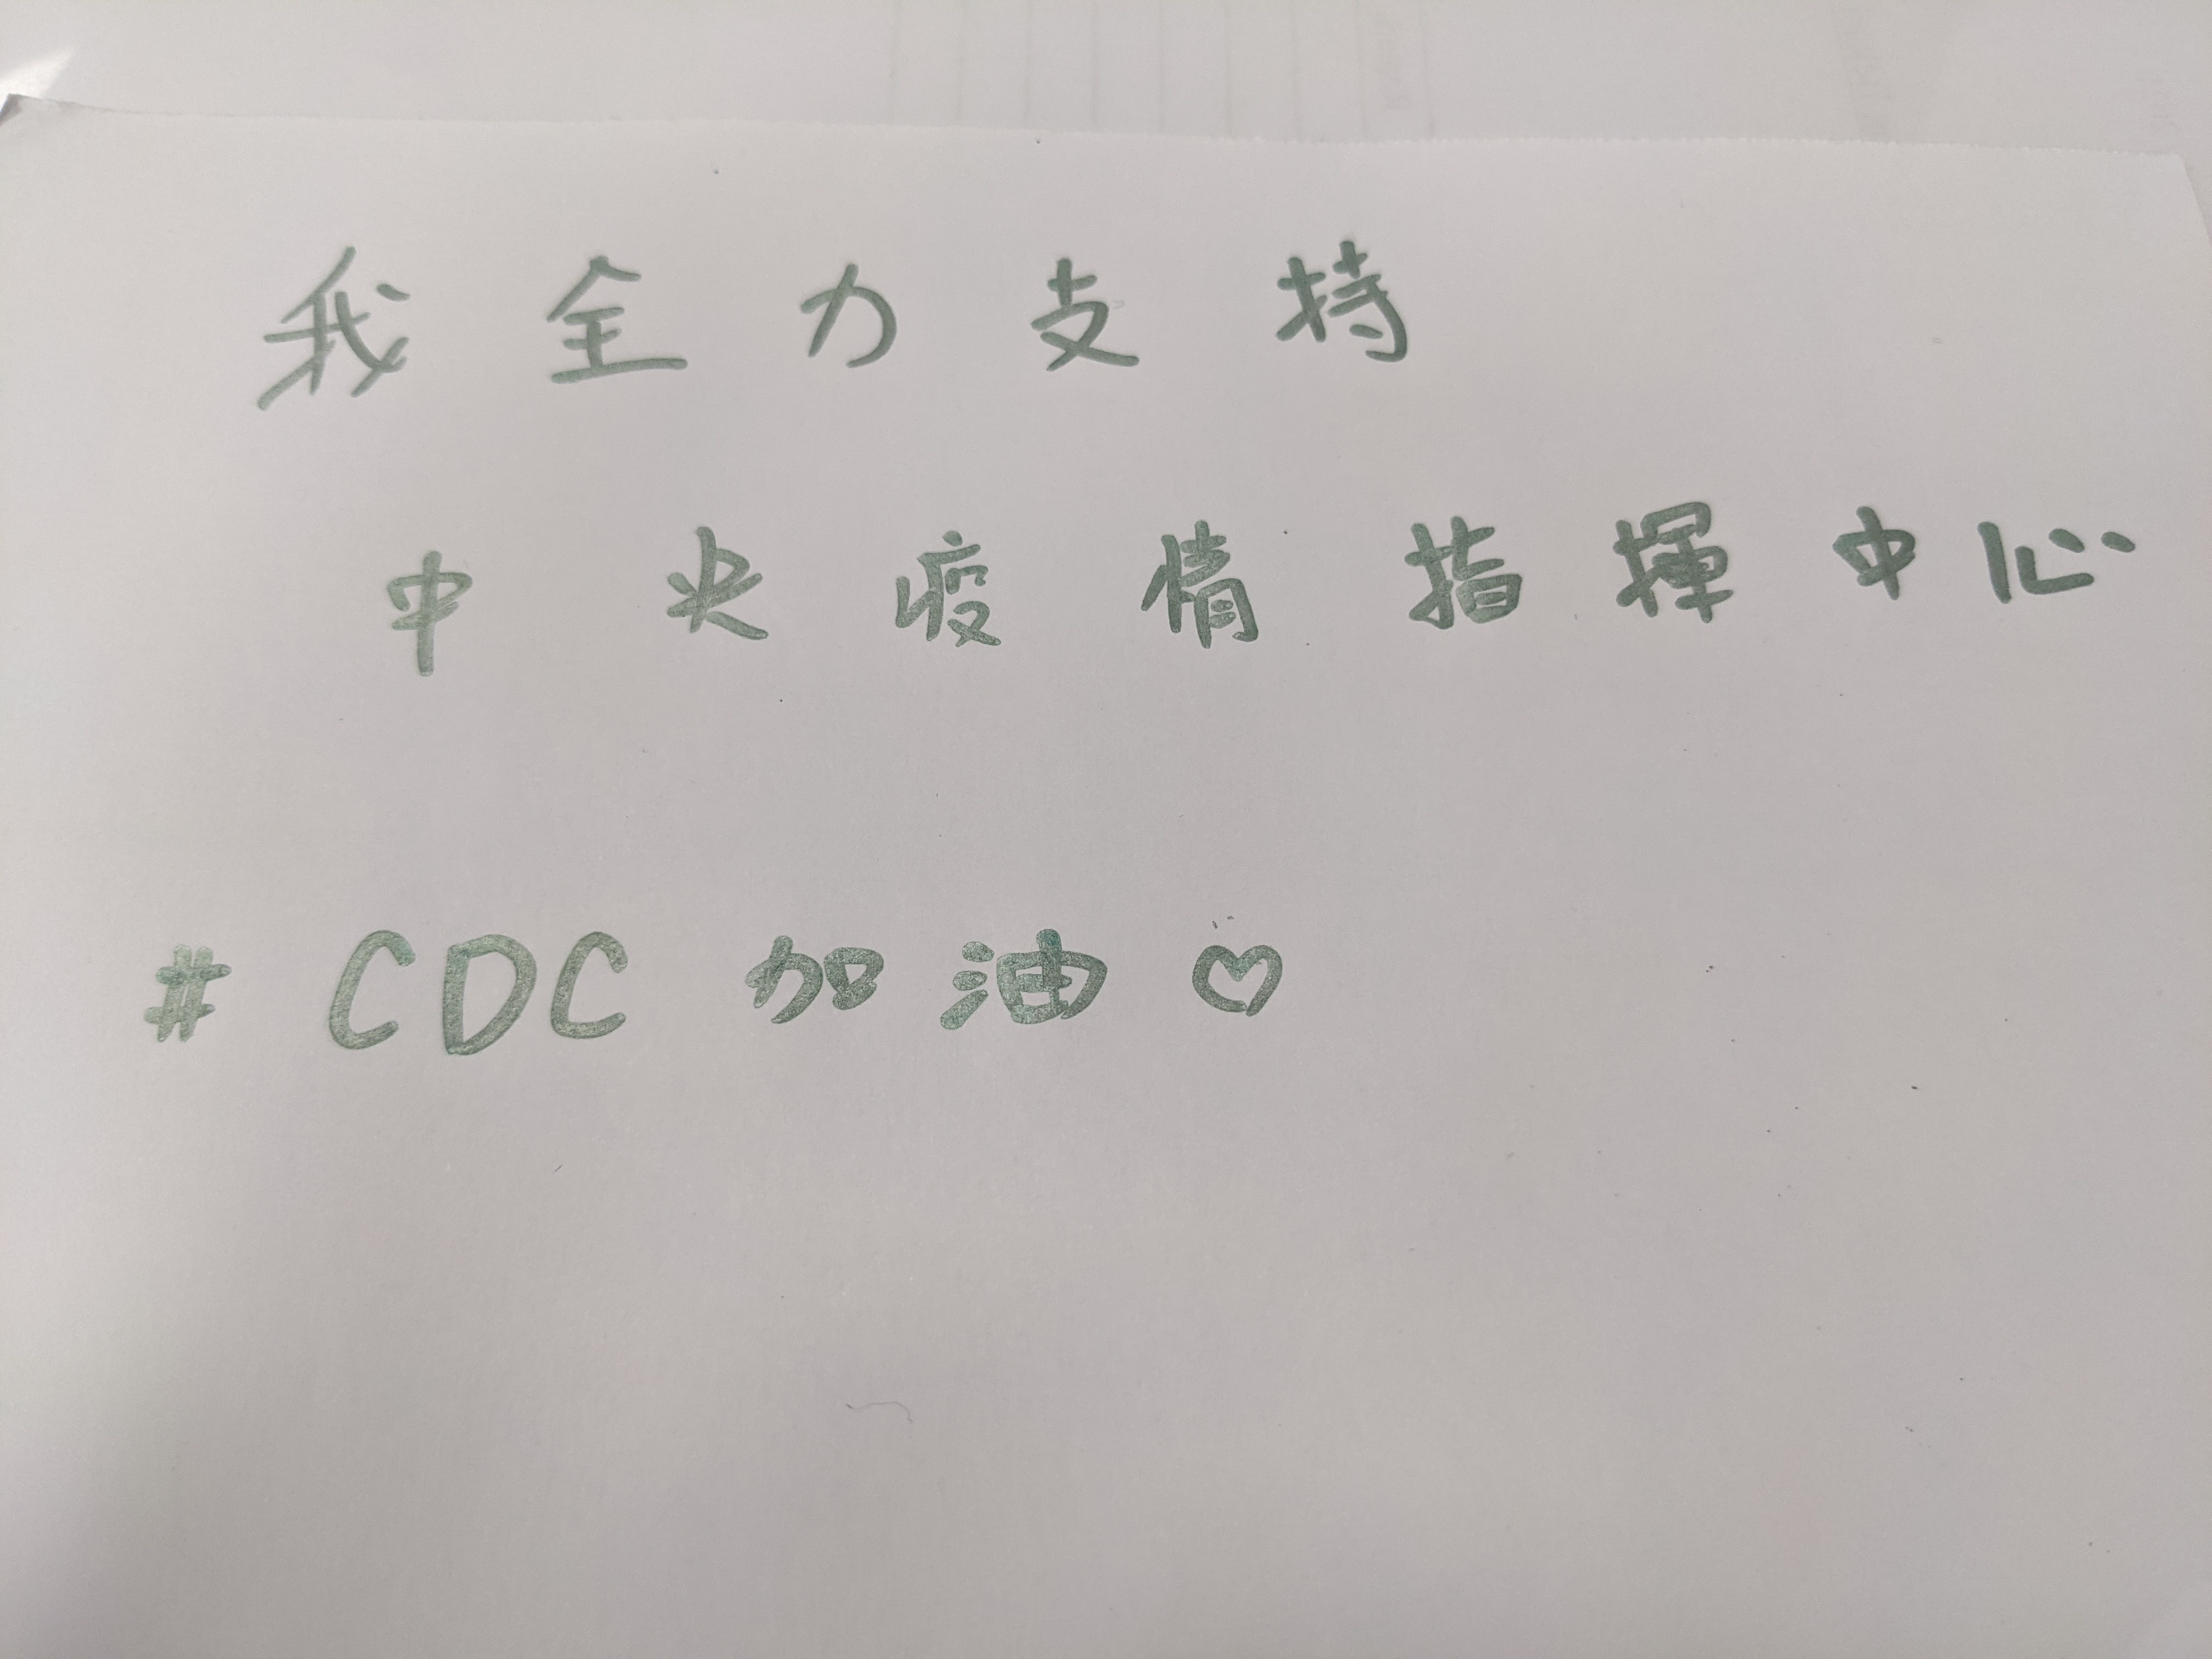 我全力支持
中央疫情指揮中心
# CDC 加油♡